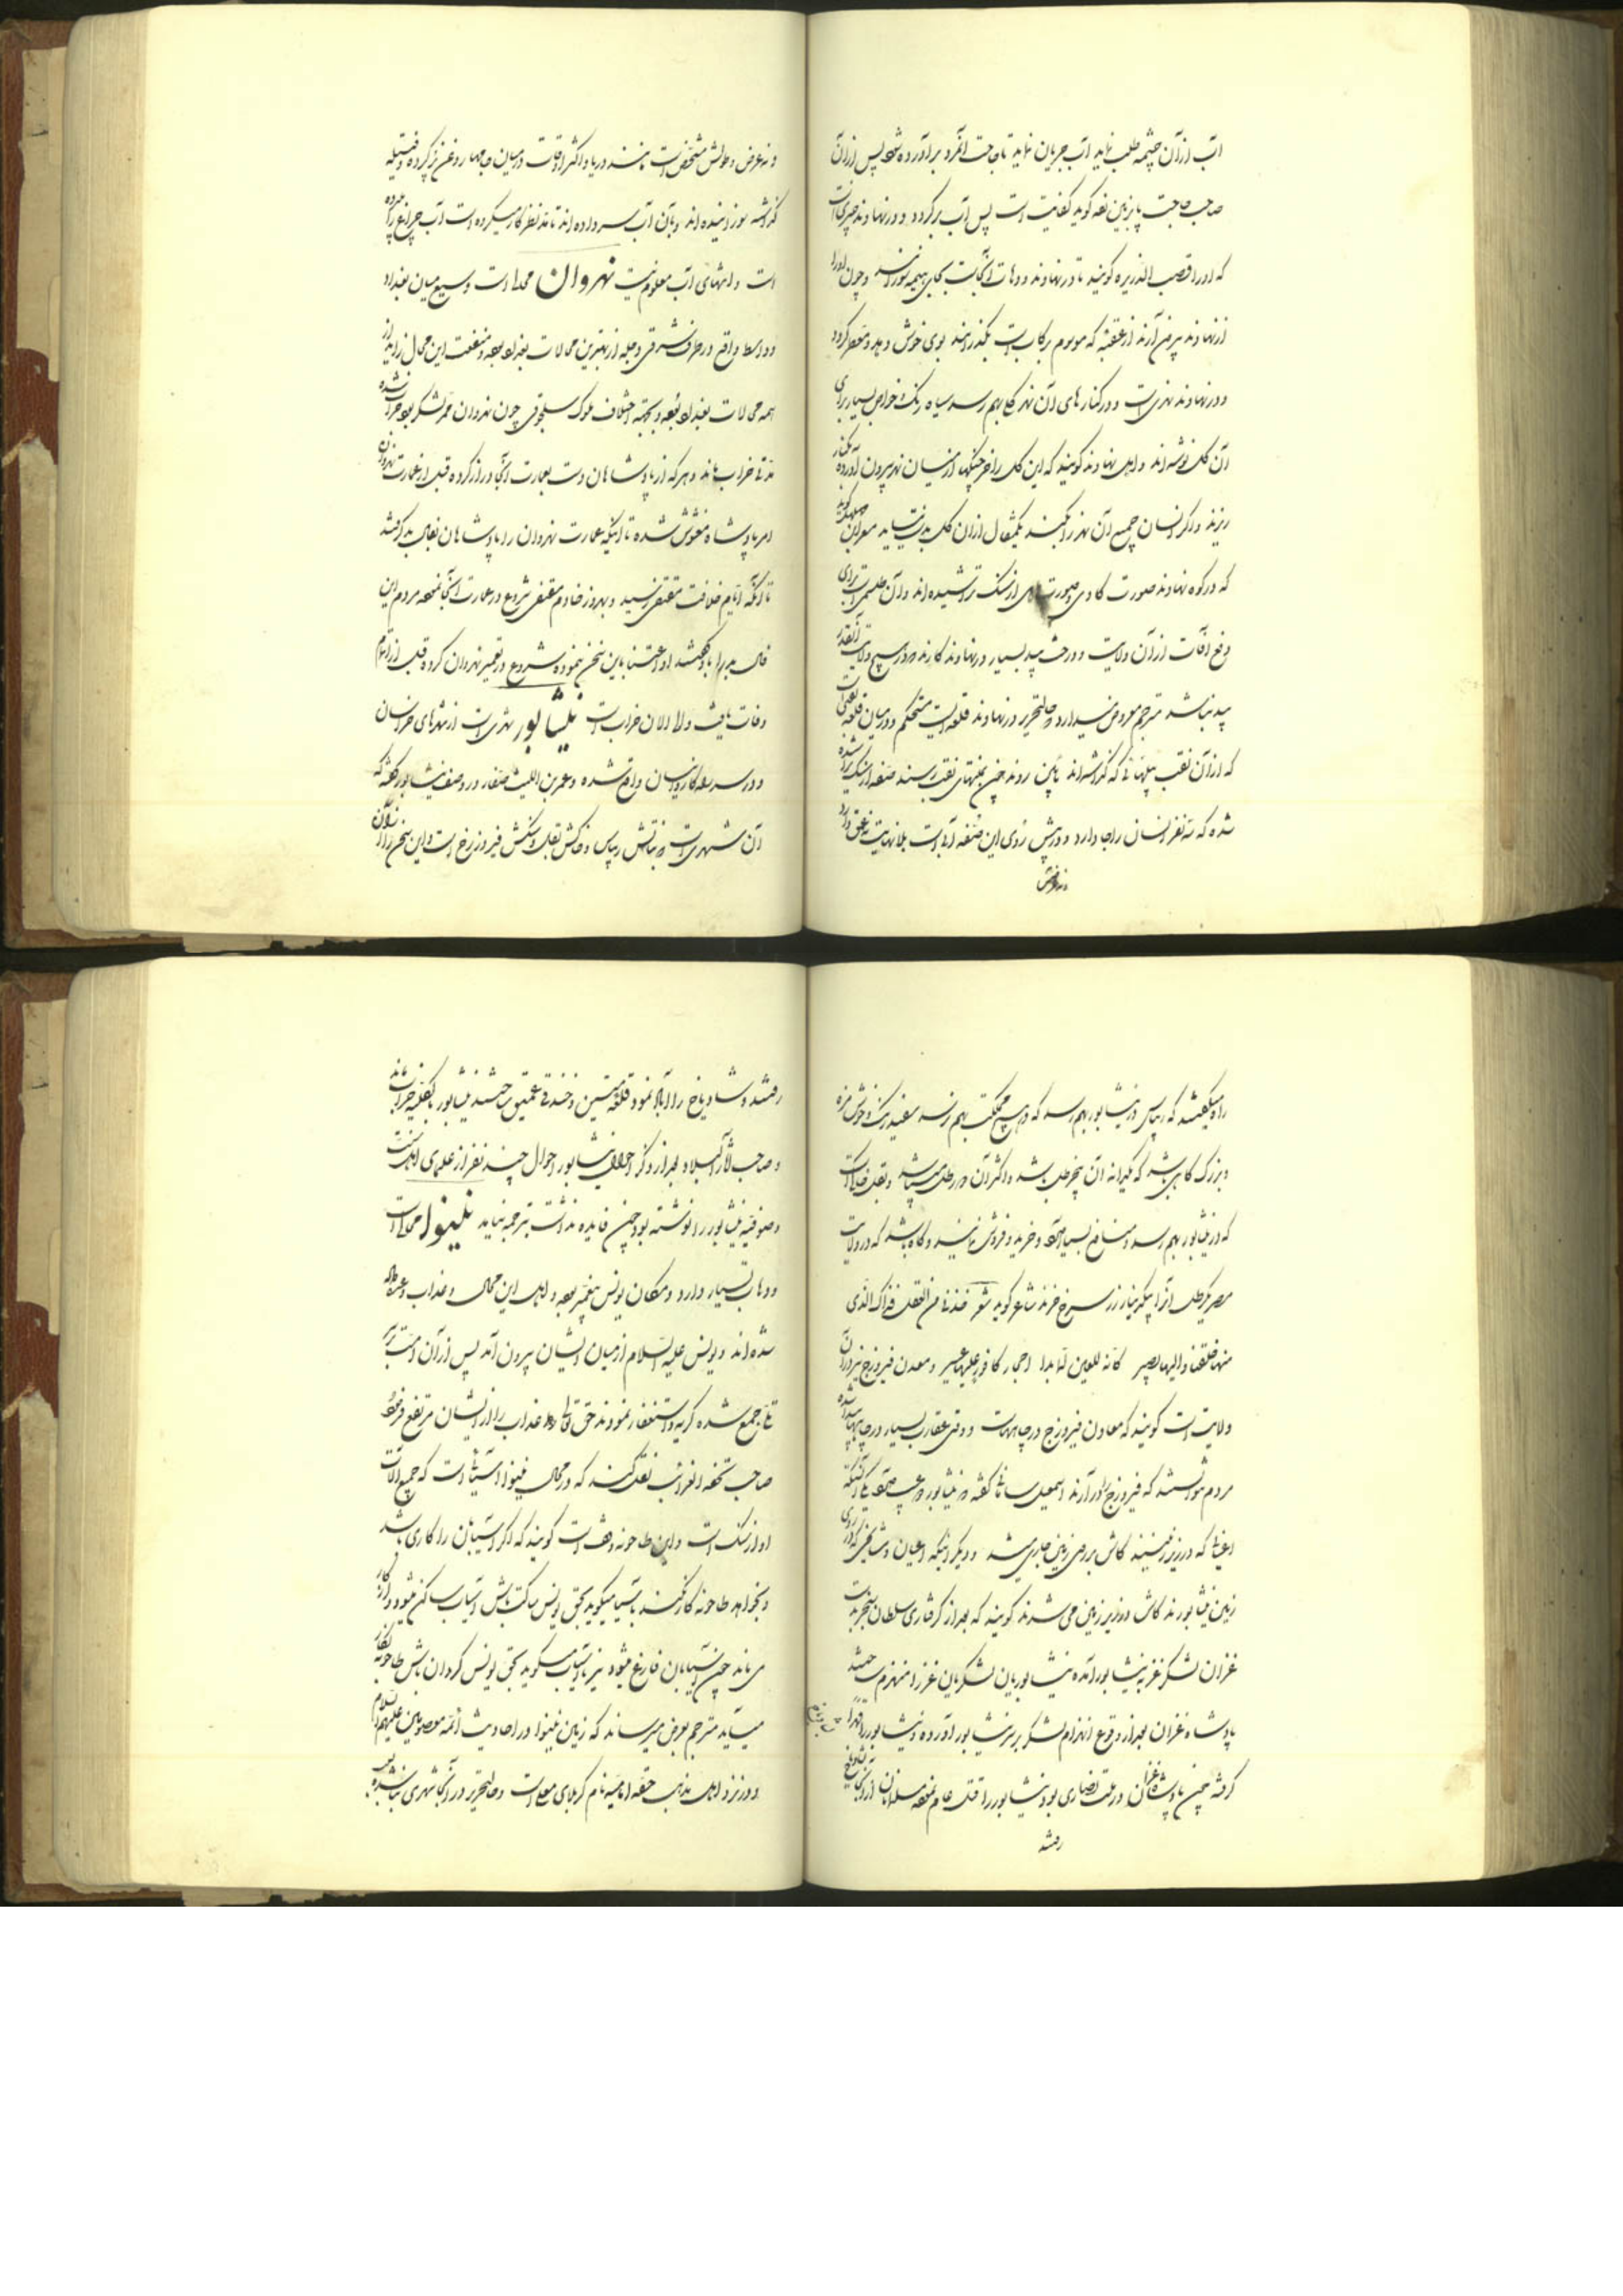 آب از آن چشمه طلب نماید آب جریان نماید تا حاجت آنمرد برآورده شود پس از آن
صاحب حاجت پا بزمین زده کوید کفایت است پس آب برکردد و در نهاوند چیزی است
که او را قصب الذریره کویند تا در نهاوند و دهات آنجاست بجای هیمه سوزانند و چون او را
از نهاوند بیرون آرند از عقبه که موسوم برکاب است بگذرانند بوی خوش دهد و معطر کردد
و در نهاوند نهری است و در کنار های آن نهر کلی بهم رسد سیاه رنک و خواص بسیار برای
آن کل نوشته اند و اهل نهاوند کویند که این کل را خرچنکها از میان نهر بیرون آورده بکنار
ریزند و اکر انسان جمیع آن نهر را بکند یکمثقال از آن کل بدست نیاید
که در کوه نهاوند صورت کاوی و صورت ماهی از سنک تراشیده اند و آن طلسمی است برای
دفع آفات از آن ولایت و درخت بید بسیار در نهاوند کارند و در هیچ ولایت آنقدر
بید نباشد مترجم معروض میدارد و حالتحریر در نهاوند قلعه ایست مستحکم و در میان قلعه نقبی است
که از آن نقب بپلهائی که کذاشته اند پائین روند چون بمنتهای نقب رسند صفه از سنک تراشیده
شده که نفر انسان را جا دارد و در پیش روی این صفه آبی است بلا نهایت نه عمق دارد
نه عرض
و نه عرض و طولش مشخص است مانند دریا و اکثر اوقات در میان جامها روغن پر کرده و فتیله
کذاشته سوزانیده اند و بآن آب سر داده اند تا مد نظر کار میکرده است آب چراغ را برده
است و انتهای آب معلوم نیست نهروان محلی است وسیع میان بغداد
و واسط واقع در طرف شرقی دجله از بهترین محالات بغداد بوده و منفعت این محال زاید از
همه محالات بغداد بوده و بجهة اختلاف ملوک سلجوقی چون نهروان ممر لشکر بوده خراب شده
مدتی خراب ماند و هر که از پادشاهان دست بعمارت آنجا دراز کرده قبل از عمارت نهروان
امر پادشاه مغشوش شده تا اینکه عمارت نهروان را پادشاهان بفال بد کرفتند
تا آنکه ایام خلافت مقتفی رسید و بهروز خادم مقتفی شروع در عمارت آنجا نموده مردم این
فال بد را باو کفتند او اعتنا باین سخن ننموده شروع در تعمیر نهروان کرده قبل از اتمام
وفات یافت و الی الآن خراب است نیشابور شهری است از شهرهای خراسان
و در سر راه کاروانیان واقع شده و عمرو بن اللیث صفار در وصف نیشابور کفته که
آن شهری است که نباتش ریباس و خاکش نقل و سنکش فیروزج است و این سخن را از آن
راه میکفتند که ریباس در نیشابور بهم رسد که در هیچ مملکت بهم نرسد سفید رنک و خوش مزه
و بزرک کاهی باشد که یکدانه آن پنج رطل باشد و اکثر آن دو رطل میباشد و نقل خاکی است
که در نیشابور بهم رسد و منافع بسیار دارد و خرید و فروش نمایند و کاه باشد که در ولایت
مصر یکرطل آنرا بیکدینار زر سرخ خرند شاعر کوید شعر خذنا من النقل فذاک الذی
منها خلقنا و الیها نصیر کانه للعین لما بدا احجار کافور علیها عبیر و معدن فیروزج نیز در آن
ولایت است کویند که معادن فیروزج در چاههاست و وقتی عقارب بسیار در چاهها پیدا شده
مردم نتوانستند که فیروزج را در آرند اسمعیل سامانی کفته که نیشابور دو عیب دارد یکی آنکه
که در زیر زمینند کاش بر روی زمین جاری میشد و دیکر اینکه اعیان و مشایخی که در روی
زمین نیشابورند کاش در زیر زمین می شدند کویند که بعد از کرفتاری سلطان سنجر بدست
غزان لشکر غز به نیشابور آمده نیشابوریان لشکریان غز را منهزم ساختند
پادشاه غزان بعد از وقوع انهزام لشکر بر سر نیشابور آورده و نیشابور را قهراً
کرفته چون پادشاه غزان در ملت نصاری بود نیشابور را قتل عام نموده مسلمانان از آنجا به شادیاخ
رفتند
رفتند و شادیاخ را آباد نموده قلعه متین و خندقی عمیق ساختند نیشابور بالکلیه خراب ماند
و صاحب آثار البلاد بعد از ذکر احوال نیشابور احوال چند نفر از علمای اهل سنت
و صوفیه نیشابور را نوشته بود چون فایده نداشت ترجمه ننماید نینوا محلی است
و دهات بسیار دارد و مکان یونس پیغمبر بوده و اهل این محال وعده عذاب داده
شده اند و یونس علیه السلام از میان ایشان بیرون آمد پس از آن امت بر
تلّی جمع شده کریه و استغفار نمودند حق تعالی عذاب را از ایشان مرتفع فرمود
صاحب تحفه الغرائب نقل کند که در محال نینوا آسیائی است که جمیع آلات
او از سنک است و این طاحونه وقف است کویند که اکر آسیابان را کاری باشد
و بخواهد طاحونه کار نکند بآسیا میکوید بحق یونس ساکت باش آسیاب ساکن میشود و از کار
می ماند چون آسیابان فارغ میشود نیز بآسیاب میکوید بحق یونس کردان باش طاحونه بکار
میآید مترجم بعرض میرساند که زمین نینوا در احادیث ائمه معصومین علیهم السلام
و در نزد اهل مذهب حقه امامیه نام کربلای معلی است و حالتحریر در آنجا شهری بنا شده